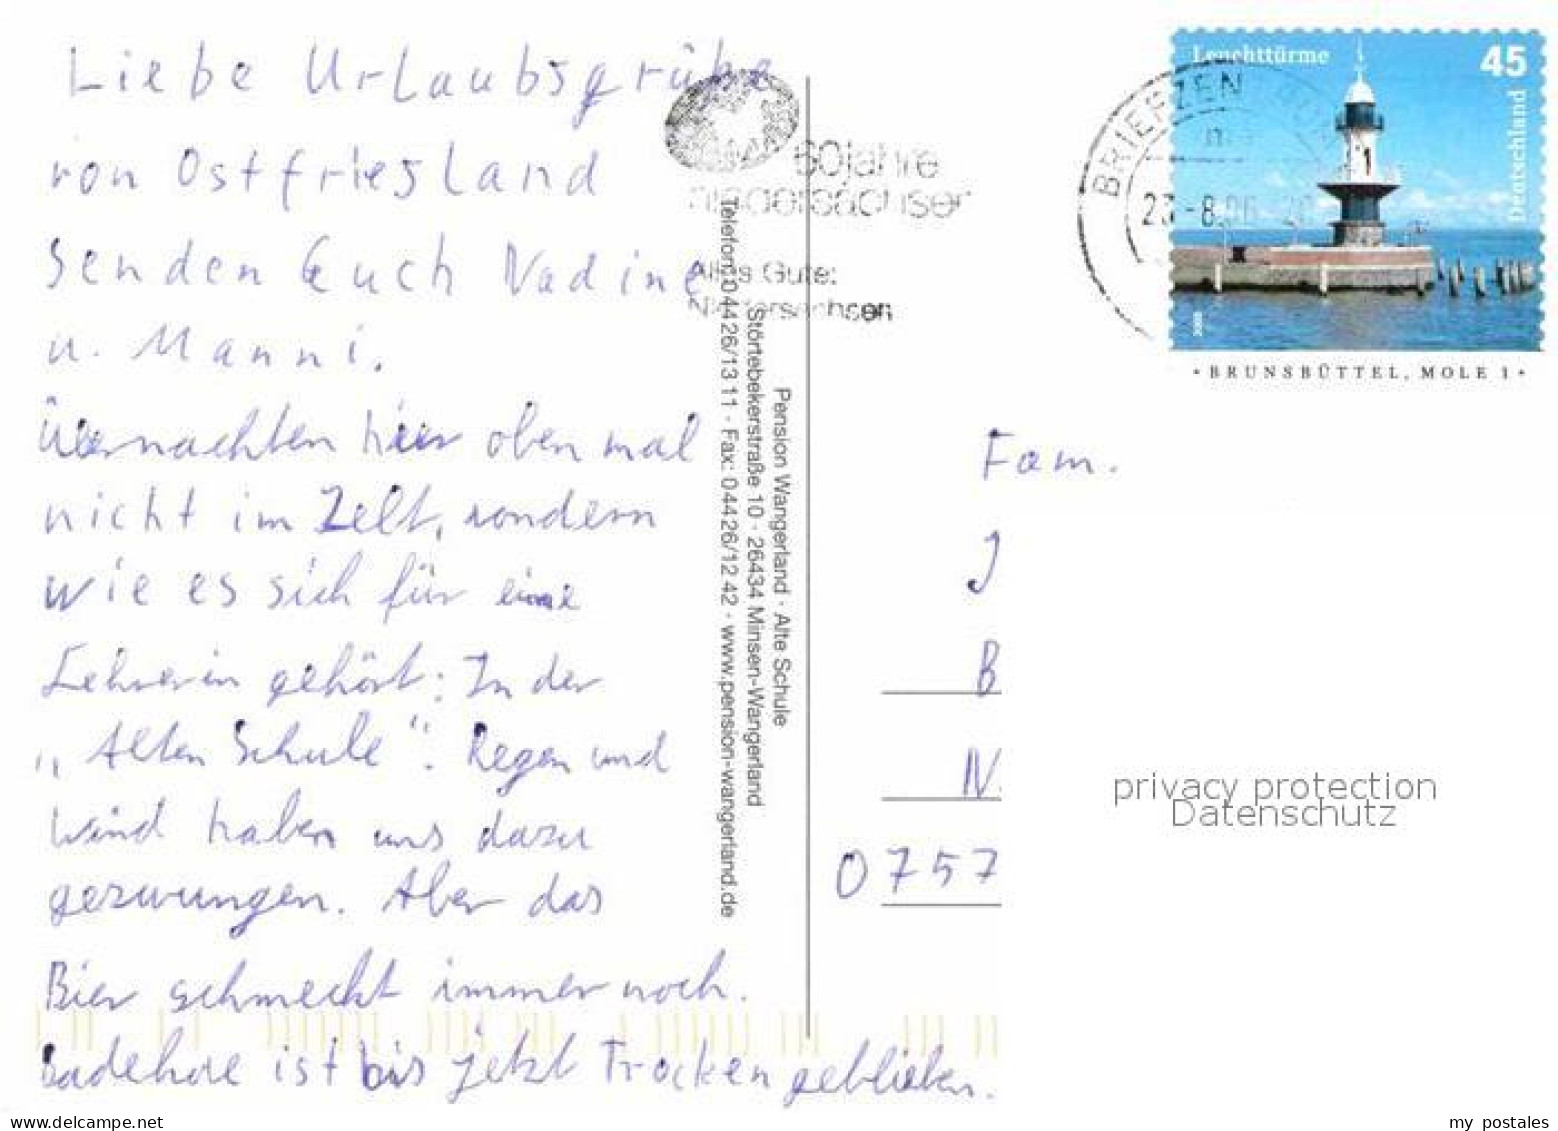 Liebe Urlaubsgrüße
von Ostfriesland
senden Euch Nadine
u. Manni.
Übernachten hier oben mal
nicht im Zelt, sondern
wie es sich für eine
Lehrerin gehört: In der
„Alten Schule". Regen und
Wind haben uns dazu
gezwungen. Aber das
Bier schmeckt immer noch.
Badehose ist bis jetzt Trocken geblieben.
60 Jahre
Niedersachsen
Alles Gute:
Niedersachsen
Pension Wangerland · Alte Schule
Störtebekerstraße 10 · 26434 Minsen-Wangerland
Telefon: 04426/1311 · Fax: 04426/1242 · www.pension-wangerland.de
BRIEFZEN
23-8.06
Leuchttürme
45
Deutschland
• BRUNSBÜTTEL, MOLE 1 •
Fam.
J
B
N.
0757
privacy protection
Datenschutz
my postales